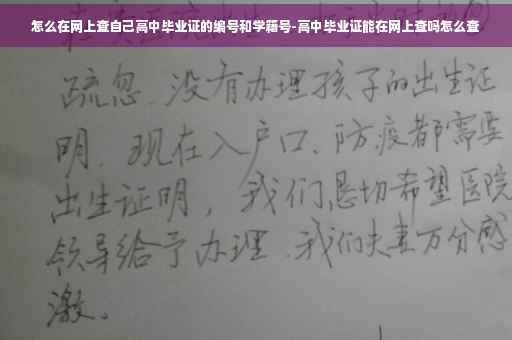 怎么在网上查自己高中毕业证的编号和学籍号-高中毕业证能在网上查吗怎么查
疏忽、没有办理孩子的出生证
明、现在入户口、防疫都需要
出生证明，我们恳切希望医院
领导给予办理、我们夫妻万分感
激。